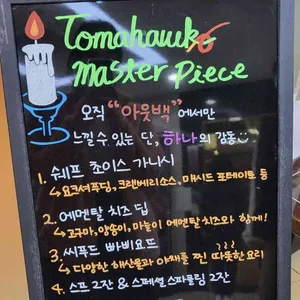 Tomahawk
master piece
오직 "아웃백"에서만
느낄 수 있는 단, 하나의 감동
1. 쉐프 초이스 가니쉬
↳ 요크셔푸딩, 크랜베리소스, 매시드 포테이토 등
2. 에멘탈 치즈 딥
↳ 고구마, 양송이, 마늘이 에멘탈 치즈와 함께!
3. 씨푸드 빠삐요뜨
↳ 다양한 해산물과 야채를 찐 따뜻한 요리
4. 스프 2잔 & 스페셜 스파클링 2잔